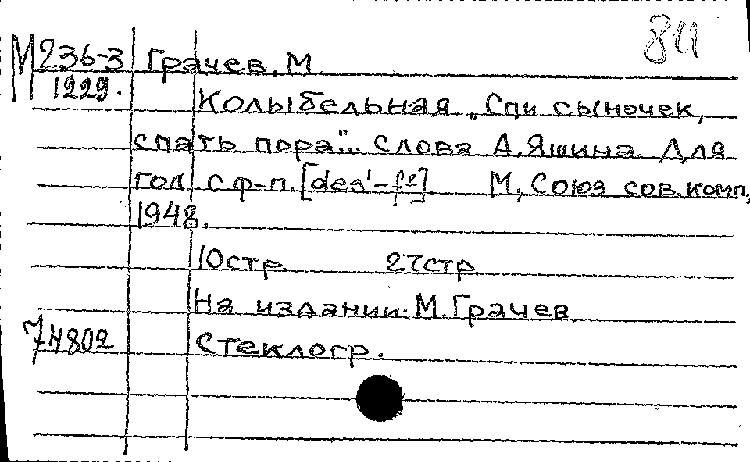 84
М 236-3 Грачев, М
1229. Колыбельная „Спи сыночек,
спать пора". Слова А. Яшина. Для
гол. с ф-п. [des'-f²] М, Союз сов. комп,
1948.
10стр 27стр
На издании: М. Грачев.
74802 Стеклогр.